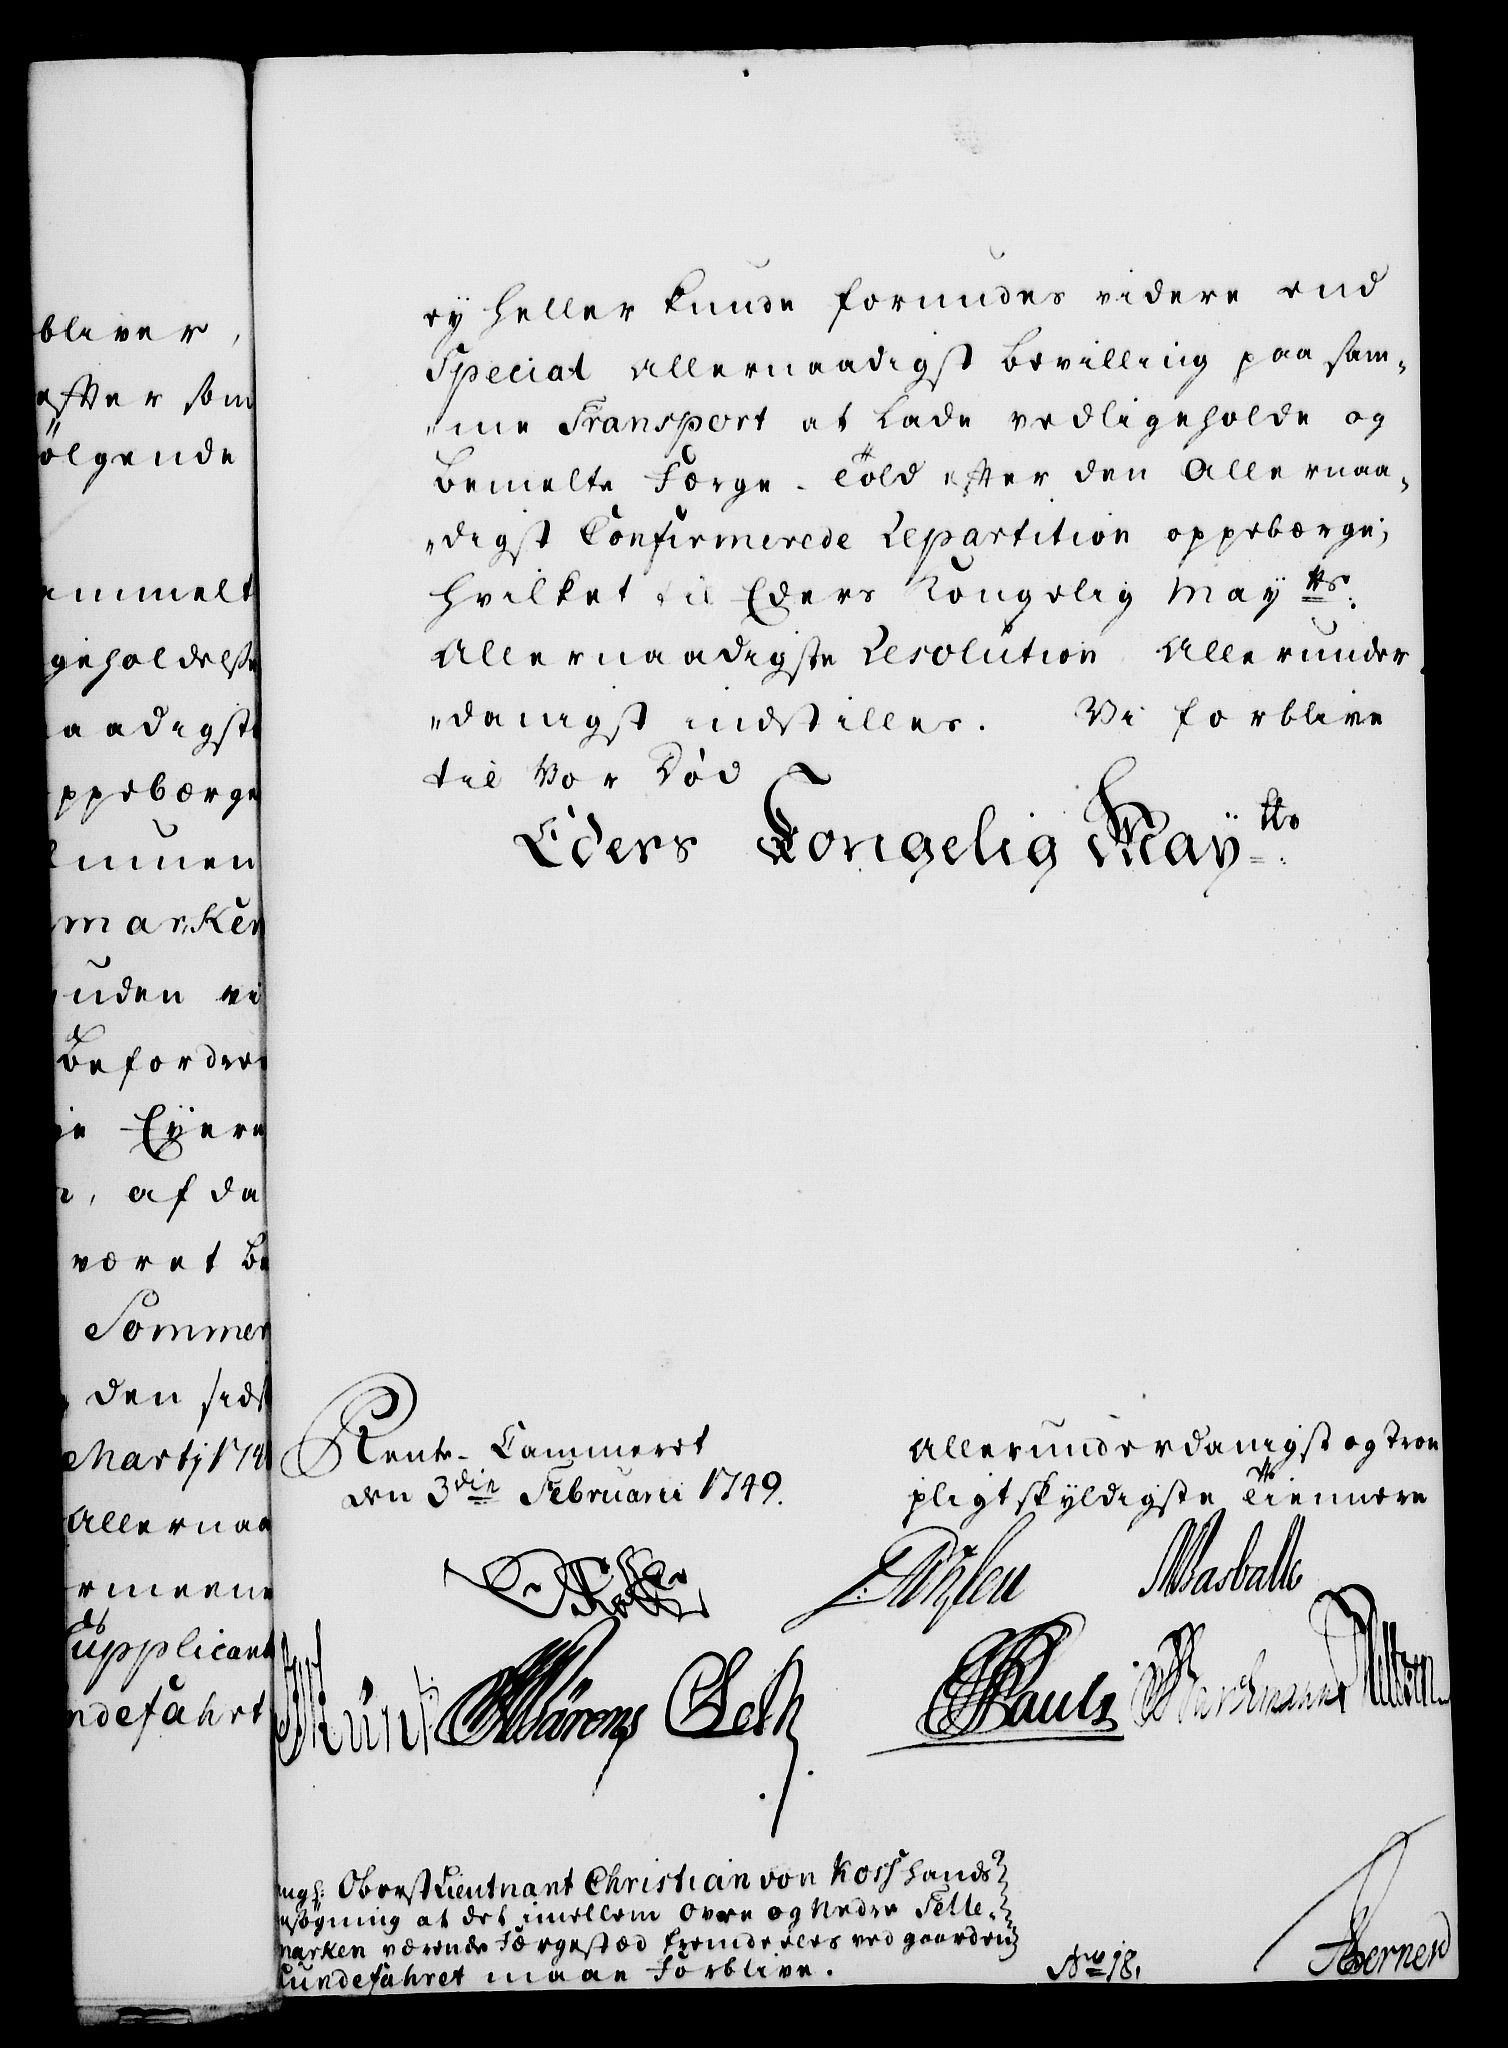 bliver,
efter som
ölgende
ammelt
geholdelse
aadigste
ppebærge
numen
marken
uden vi
Befordre
ie Eyere
af da
været be
Sommer
den sidst
Martj 174
Allernaa
rmeene
Supplicant
ndefahrt
ey heller kunde forundes videre end
Special allernaadigst bevilling paa sam„
„me Transport at lade vedligeholde og
bemelte Færge-Told efter den Allernaa„
„digst Confirmerede Repartition oppebærge;
hvilket til Eders Kongelig Mayts.
Allernaadigste Resolution Allerunder
„danigst indstilles. Vi forblive
til Vor Död
Eders Kongelig Mayts.
Rente-Cammeret
den 3die Februarii 1749.
Allerunderdanigst og troe
pligtskyldigste Tiennere
Masballe
Pauls
ngh: Oberstlieutnant Christian von Koss hands
nsögning at det imellem Övre og Nedre Telle„
marken værende Færgestæd fremdeeles ved gaarden
Sundefahret maae forblive.
No 18.